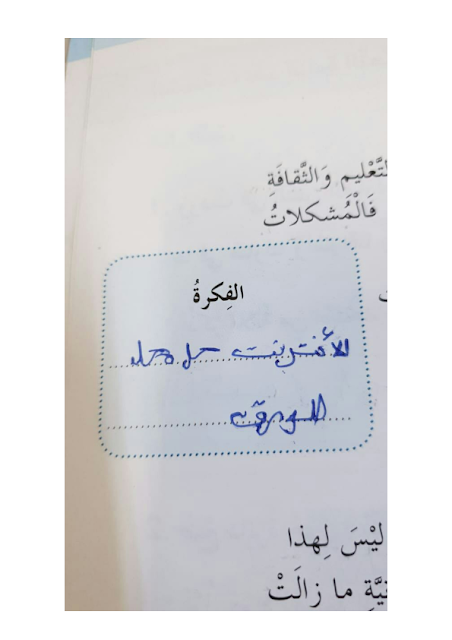 التَّعْليمِ وَالثَّقافَةِ
فَالْمُشكلاتُ
الفِكرةُ
الأنترنت حل محل
ليْسَ لِهذا
ما زالَتْ